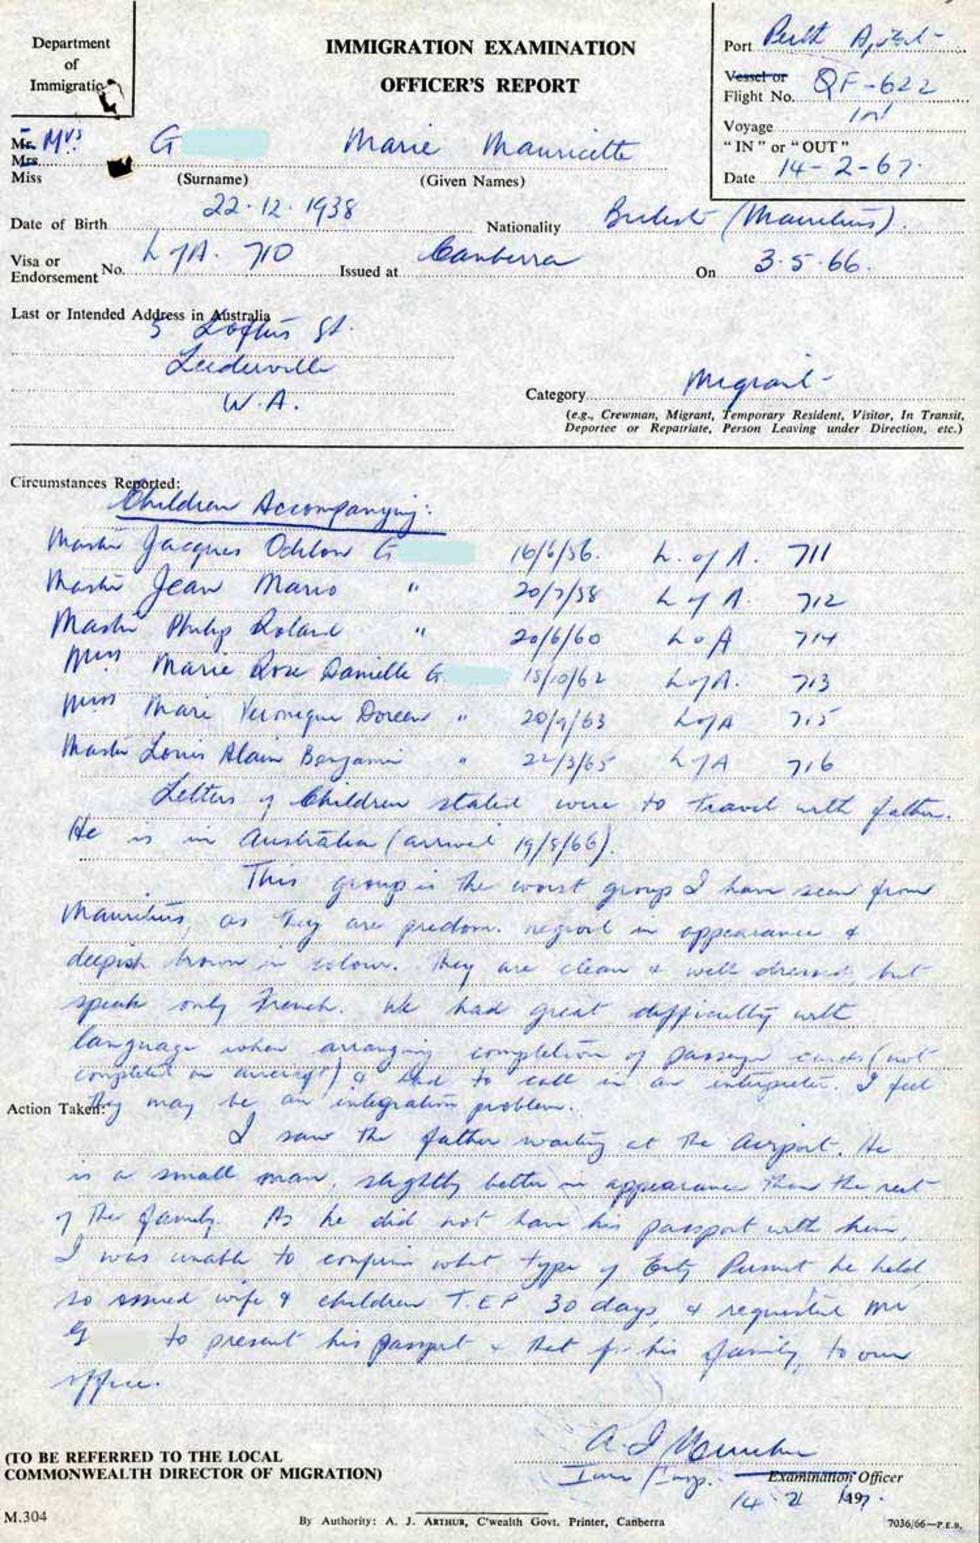 Department
of
Immigration
IMMIGRATION EXAMINATION
OFFICER'S REPORT
Port Perth Airport
Vessel or
Flight No. QF-622
Voyage
"IN" or "OUT" In
Date 14-2-67.
Mr. Mrs
Mrs.
Miss
G Marie Mauricette
(Surname) (Given Names)
Date of Birth 22.12.1938 Nationality British (Mauritius).
Visa or
Endorsement No. L of A. 710 Issued at Canberra On 3.5.66.
Last or Intended Address in Australia
5 Loftus St.
Leederville
W.A.
Category Migrant
(e.g., Crewman, Migrant, Temporary Resident, Visitor, In Transit,
Deportee or Repatriate, Person Leaving under Direction, etc.)
Circumstances Reported:
Children Accompanying:
Master Jacques Odilon G 16/6/56. L. of A. 711
Master Jean Mario " 20/7/58 L of A. 712
Master Philip Roland " 20/6/60 L o A 714
Miss Marie Rose Danielle G 18/10/62 L of A. 713
Miss Marie Veronique Doreen " 20/9/63 L of A 715
Master Louis Alain Benjamin " 22/3/65 L of A 716
Letters of Children stated were to travel with father.
He is in Australia (arrived 19/8/66).
This group is the worst group I have seen from
Mauritius, as they are predom. negroid in appearance &
deepish brown in colour. They are clean & well dressed, but
speak only French. We had great difficulty with
language when arranging completion of passenger cards (not
completed on aircraft) & had to call in an interpreter. I feel
they may be an integration problem.
Action Taken:
I saw the father waiting at the Airport. He
is a small man, slightly better in appearance than the rest
of the family. As he did not have his passport with him,
I was unable to confirm what type of Entry Permit he held,
so issued wife & children T.E.P 30 days, & requested Mr
G to present his passport & that for his family, to our
office.
(TO BE REFERRED TO THE LOCAL
COMMONWEALTH DIRECTOR OF MIGRATION)
A. J.
Examination Officer
14 2 1967.
M.304
By Authority: A. J. ARTHUR, C'wealth Govt. Printer, Canberra
7036/66—P.E.B.